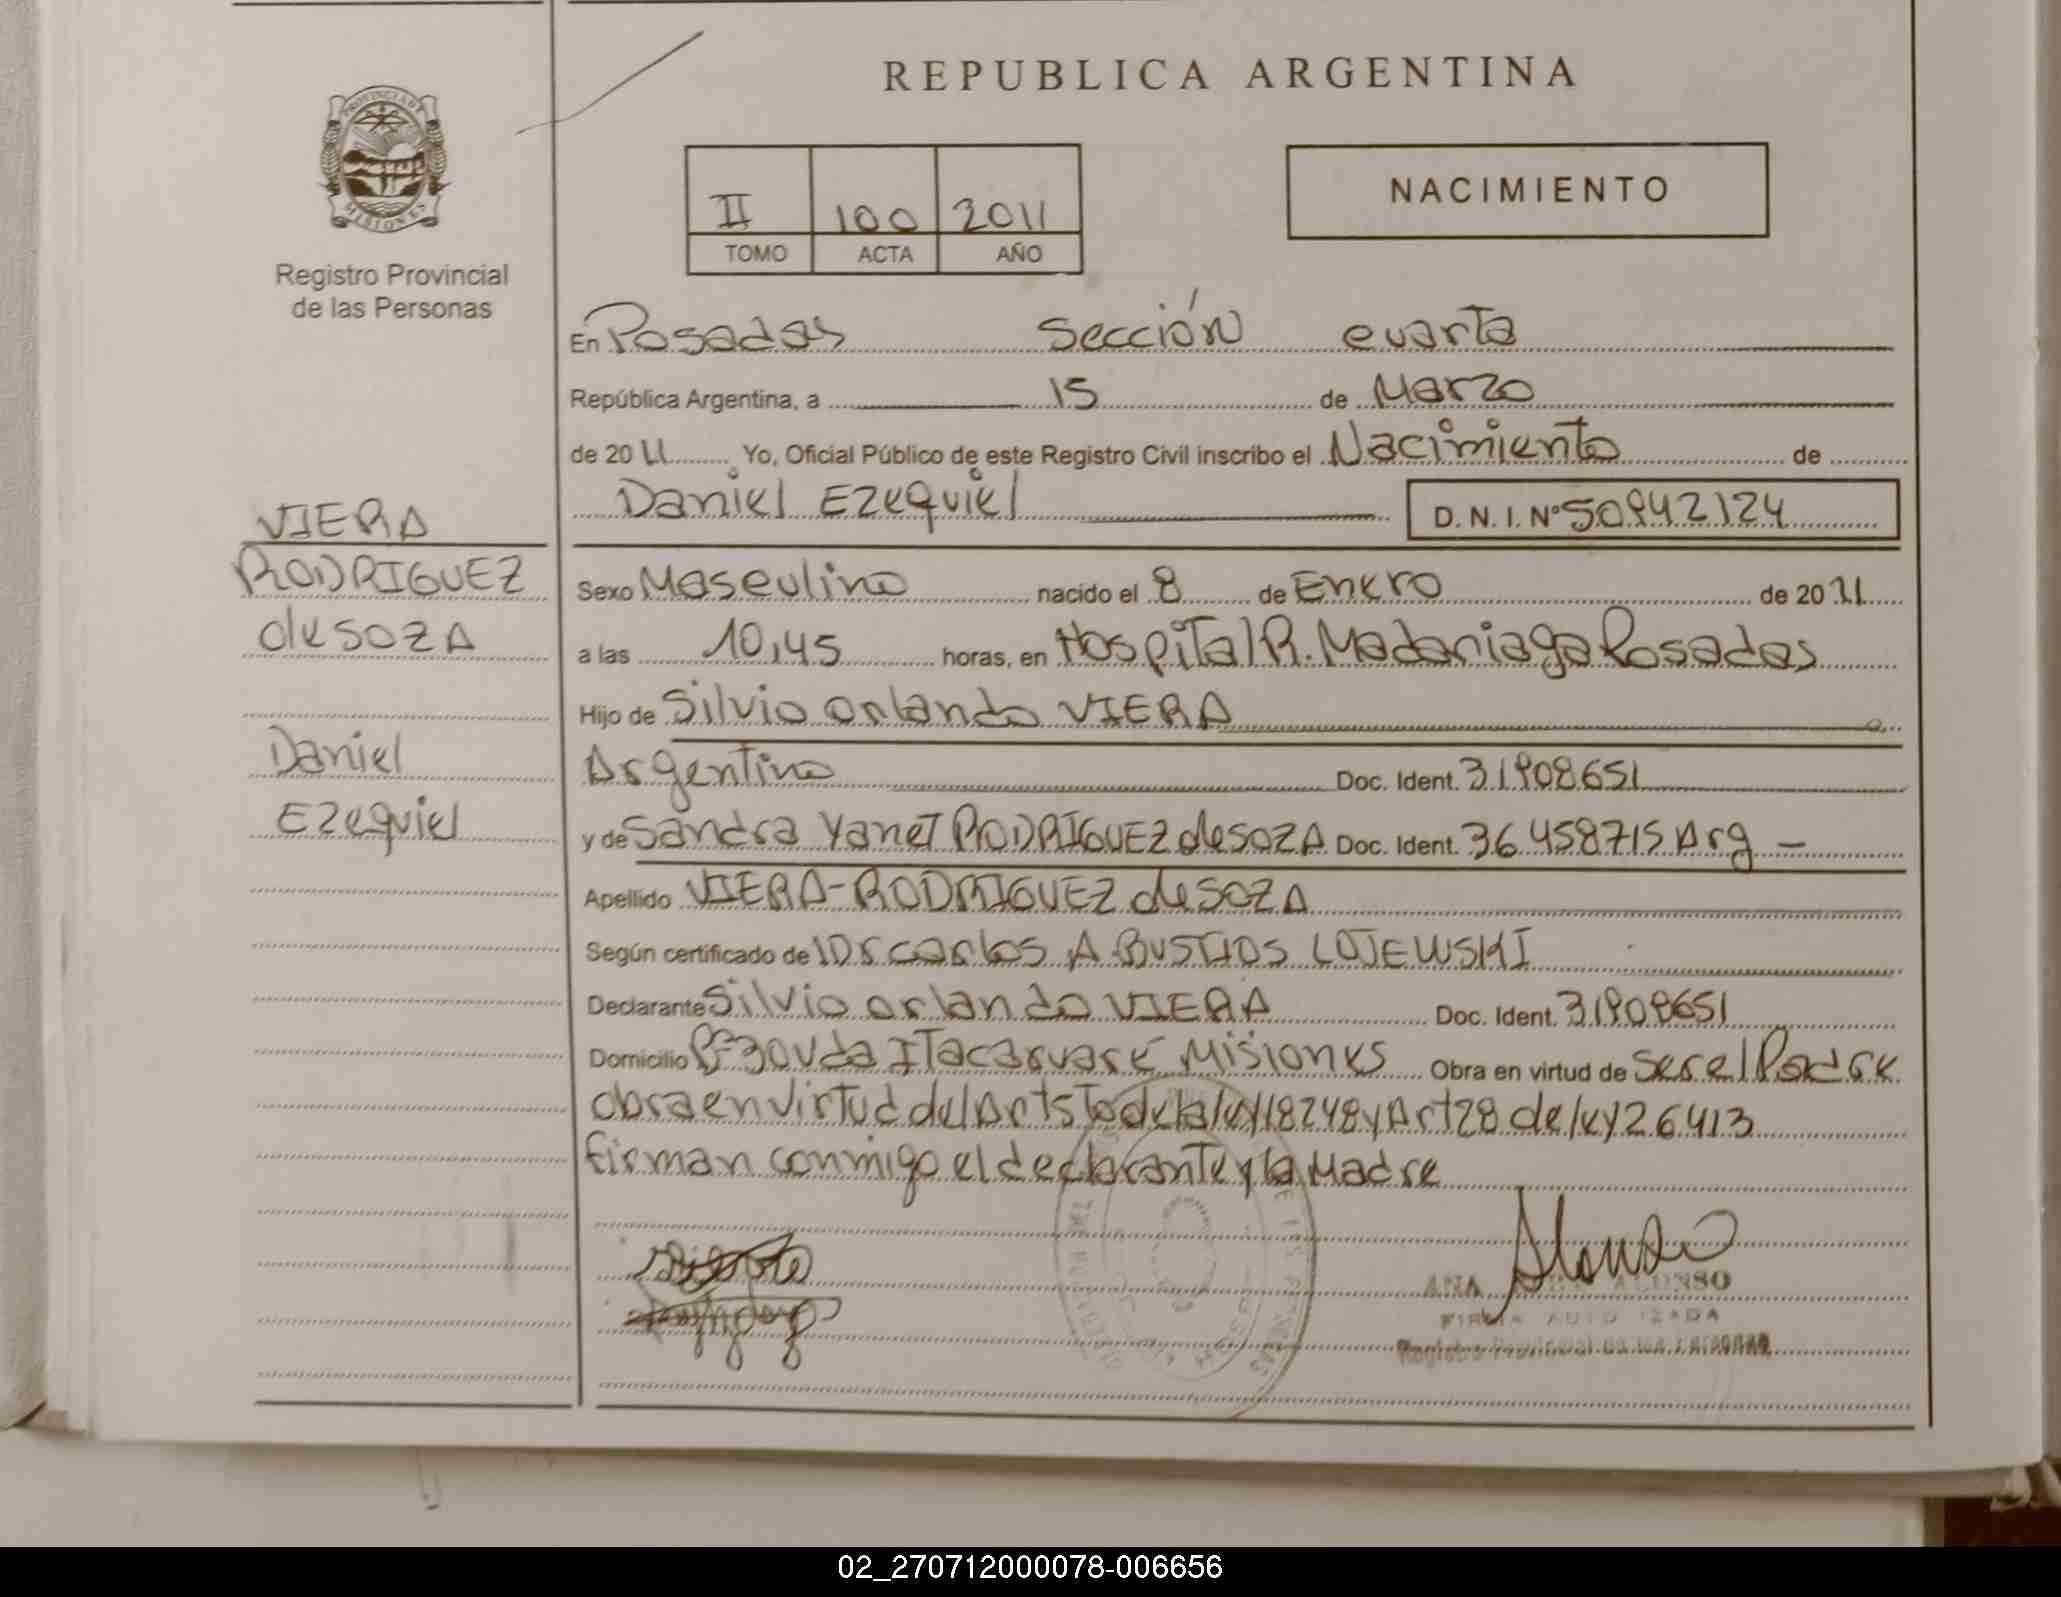 REPUBLICA ARGENTINA
PROVINCIA DE
MISIONES
Registro Provincial
de las Personas
II 100 2011
TOMO ACTA AÑO
NACIMIENTO
En Posadas Sección cuarta
República Argentina, a 15 de Marzo
de 2011 Yo, Oficial Público de este Registro Civil inscribo el Nacimiento de
Daniel Ezequiel D.N.I. Nº 50942124
VIERA
RODRIGUEZ
de SOZA
Daniel
Ezequiel
Sexo Masculino nacido el 8 de Enero de 2011
a las 10,45 horas, en Hospital R. Madariaga Posadas
Hijo de Silvio Orlando VIERA
Argentino Doc. Ident. 31908651
y de Sandra Yanet RODRIGUEZ de SOZA Doc. Ident. 36458715 Arg -
Apellido VIERA-RODRIGUEZ de SOZA
Según certificado de Dr Carlos A LOJEWSKI
Declarante Silvio Orlando VIERA Doc. Ident. 31908651
Domicilio Itacaruaré Misiones Obra en virtud de ser el Padre
obra en virtud del Art 5to de la ley 18248 y Art 28 de ley 26413
firman conmigo el declarante y la Madre
ANA ALONSO
FIRMA AUTORIZADA
Registro Provincial de las Personas
02_270712000078-006656